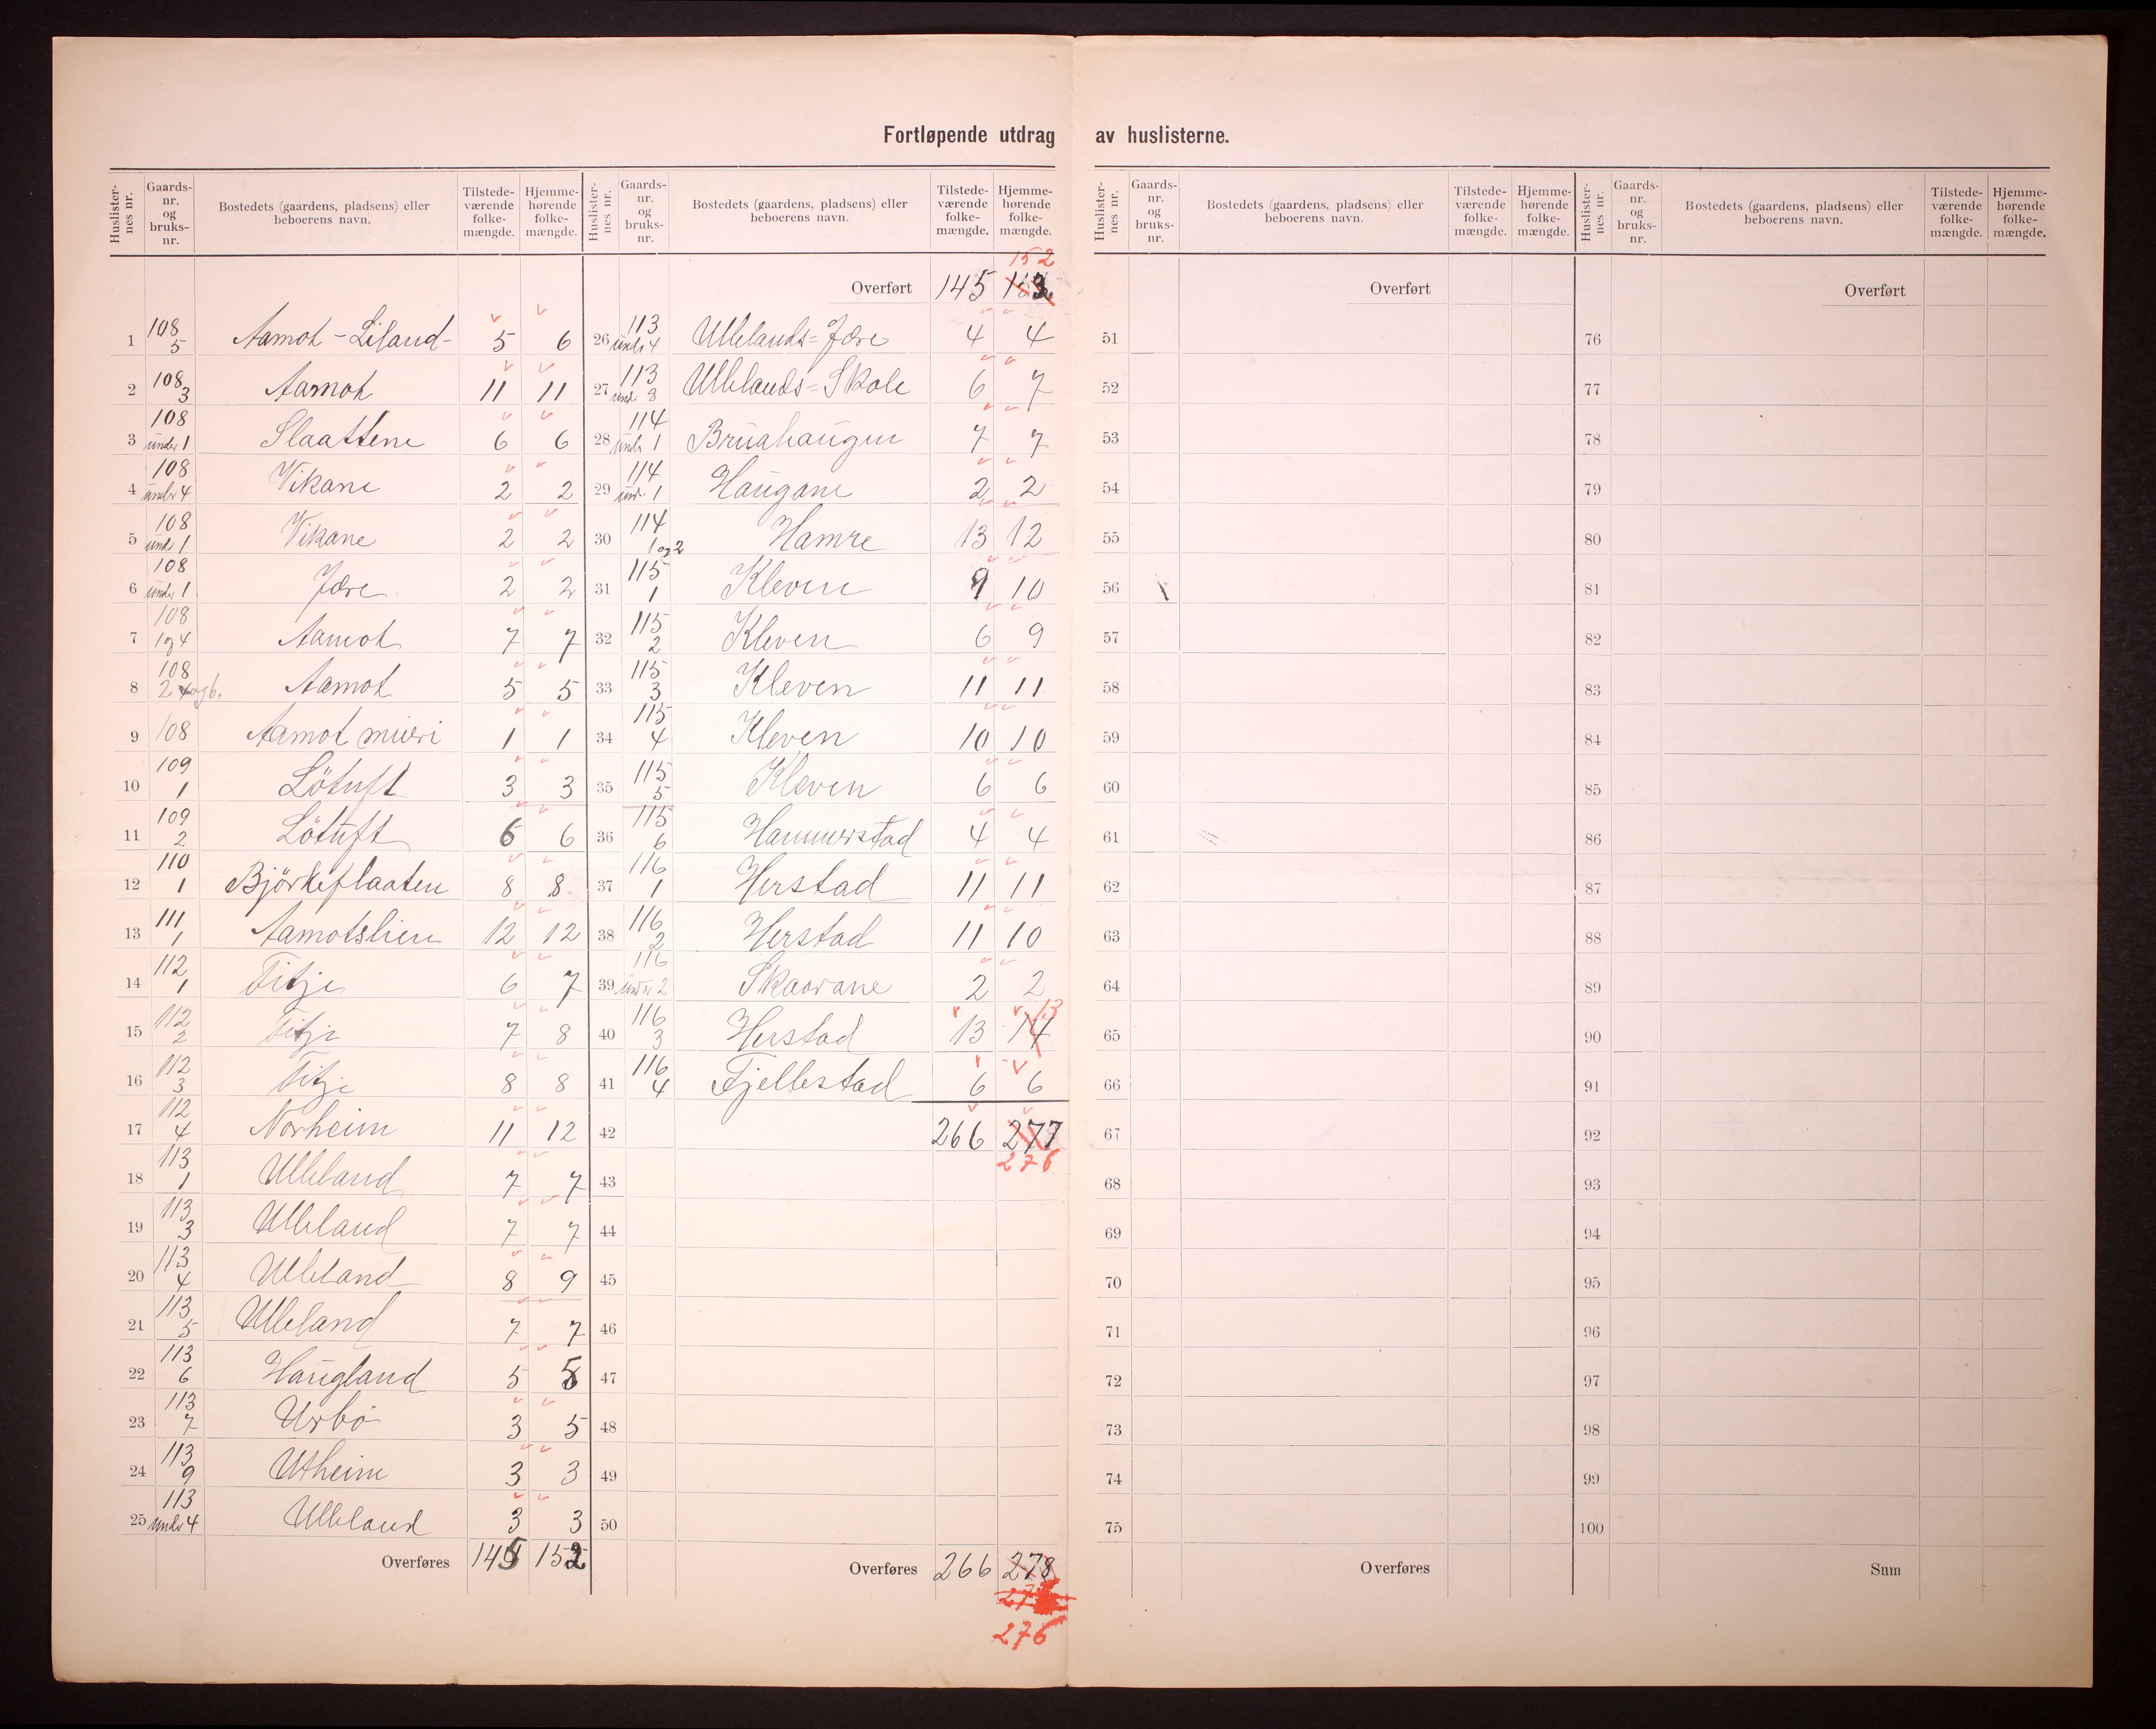 Fortløpende utdrag av huslisterne.
Huslister-nes nr. Gaards-nr. og bruks-nr. Bostedets (gaardens, pladsens) eller beboerens navn. Tilstede-værende folke-mængde. Hjemme-hørende folke-mængde.
1 108 5 Aamot - Liland - 5 6
2 108 3 Aamot 11 11
3 108 under 1 Slaattene 6 6
4 108 under 4 Vikane 2 2
5 108 under 1 Vikane 2 2
6 108 under 1 Jøre 2 2
7 108 1 og 4 Aamot 7 7
8 108 2 og 6. Aamot 5 5
9 108 Aamot 1 1
10 109 1 Lötuft 3 3
11 109 2 Lötuft 6 6
12 110 1 Björkeflaaten 8 8
13 111 1 Aamotslien 12 12
14 112 1 Titje 6 7
15 112 2 Titje 7 8
16 112 3 Titje 8 8
17 112 4 Norheim 11 12
18 113 1 Ulleland 7 7
19 113 3 Ulleland 7 7
20 113 4 Ulleland 8 9
21 113 5 Ulleland 7 7
22 113 6 Haugland 5 5
23 113 7 Urbö 3 5
24 113 9 Utheim 3 3
25 113 under 4 Ulleland 3 3
Overføres 145 152
Huslister-nes nr. Gaards-nr. og bruks-nr. Bostedets (gaardens, pladsens) eller beboerens navn. Tilstede-værende folke-mængde. Hjemme-hørende folke-mængde.
152
Overført 145
26 113 under 4 Ullelands=Jøre 4 4
27 113 under 8 Ullelands=Skole 6 7
28 114 under 1 Bruahaugen 7 7
29 114 und. 1 Haugane 2 2
30 114 1 og 2 Hamre 13 12
31 115 1 Kleven 9 10
32 115 2 Kleven 6 9
33 115 3 Kleven 11 11
34 115 4 Kleven 10 10
35 115 5 Kleven 6 6
36 115 6 Hammerstad 4 4
37 116 1 Herstad 11 11
38 116 2 Herstad 11 10
39 116 under 2 Skaarane 2 2
40 116 3 Herstad 13 14 13
41 116 4 Fjellestad 6 6
42 266 277
276
43
44
45
46
47
48
49
50
Overføres 266 278
276
Huslister-nes nr. Gaards-nr. og bruks-nr. Bostedets (gaardens, pladsens) eller beboerens navn. Tilstede-værende folke-mængde. Hjemme-hørende folke-mængde.
Overført
51
52
53
54
55
56
57
58
59
60
61
62
63
64
65
66
67
68
69
70
71
72
73
74
75
Overføres
Huslister-nes nr. Gaards-nr. og bruks-nr. Bostedets (gaardens, pladsens) eller beboerens navn. Tilstede-værende folke-mængde. Hjemme-hørende folke-mængde.
Overført
76
77
78
79
80
81
82
83
84
85
86
87
88
89
90
91
92
93
94
95
96
97
98
99
100
Sum